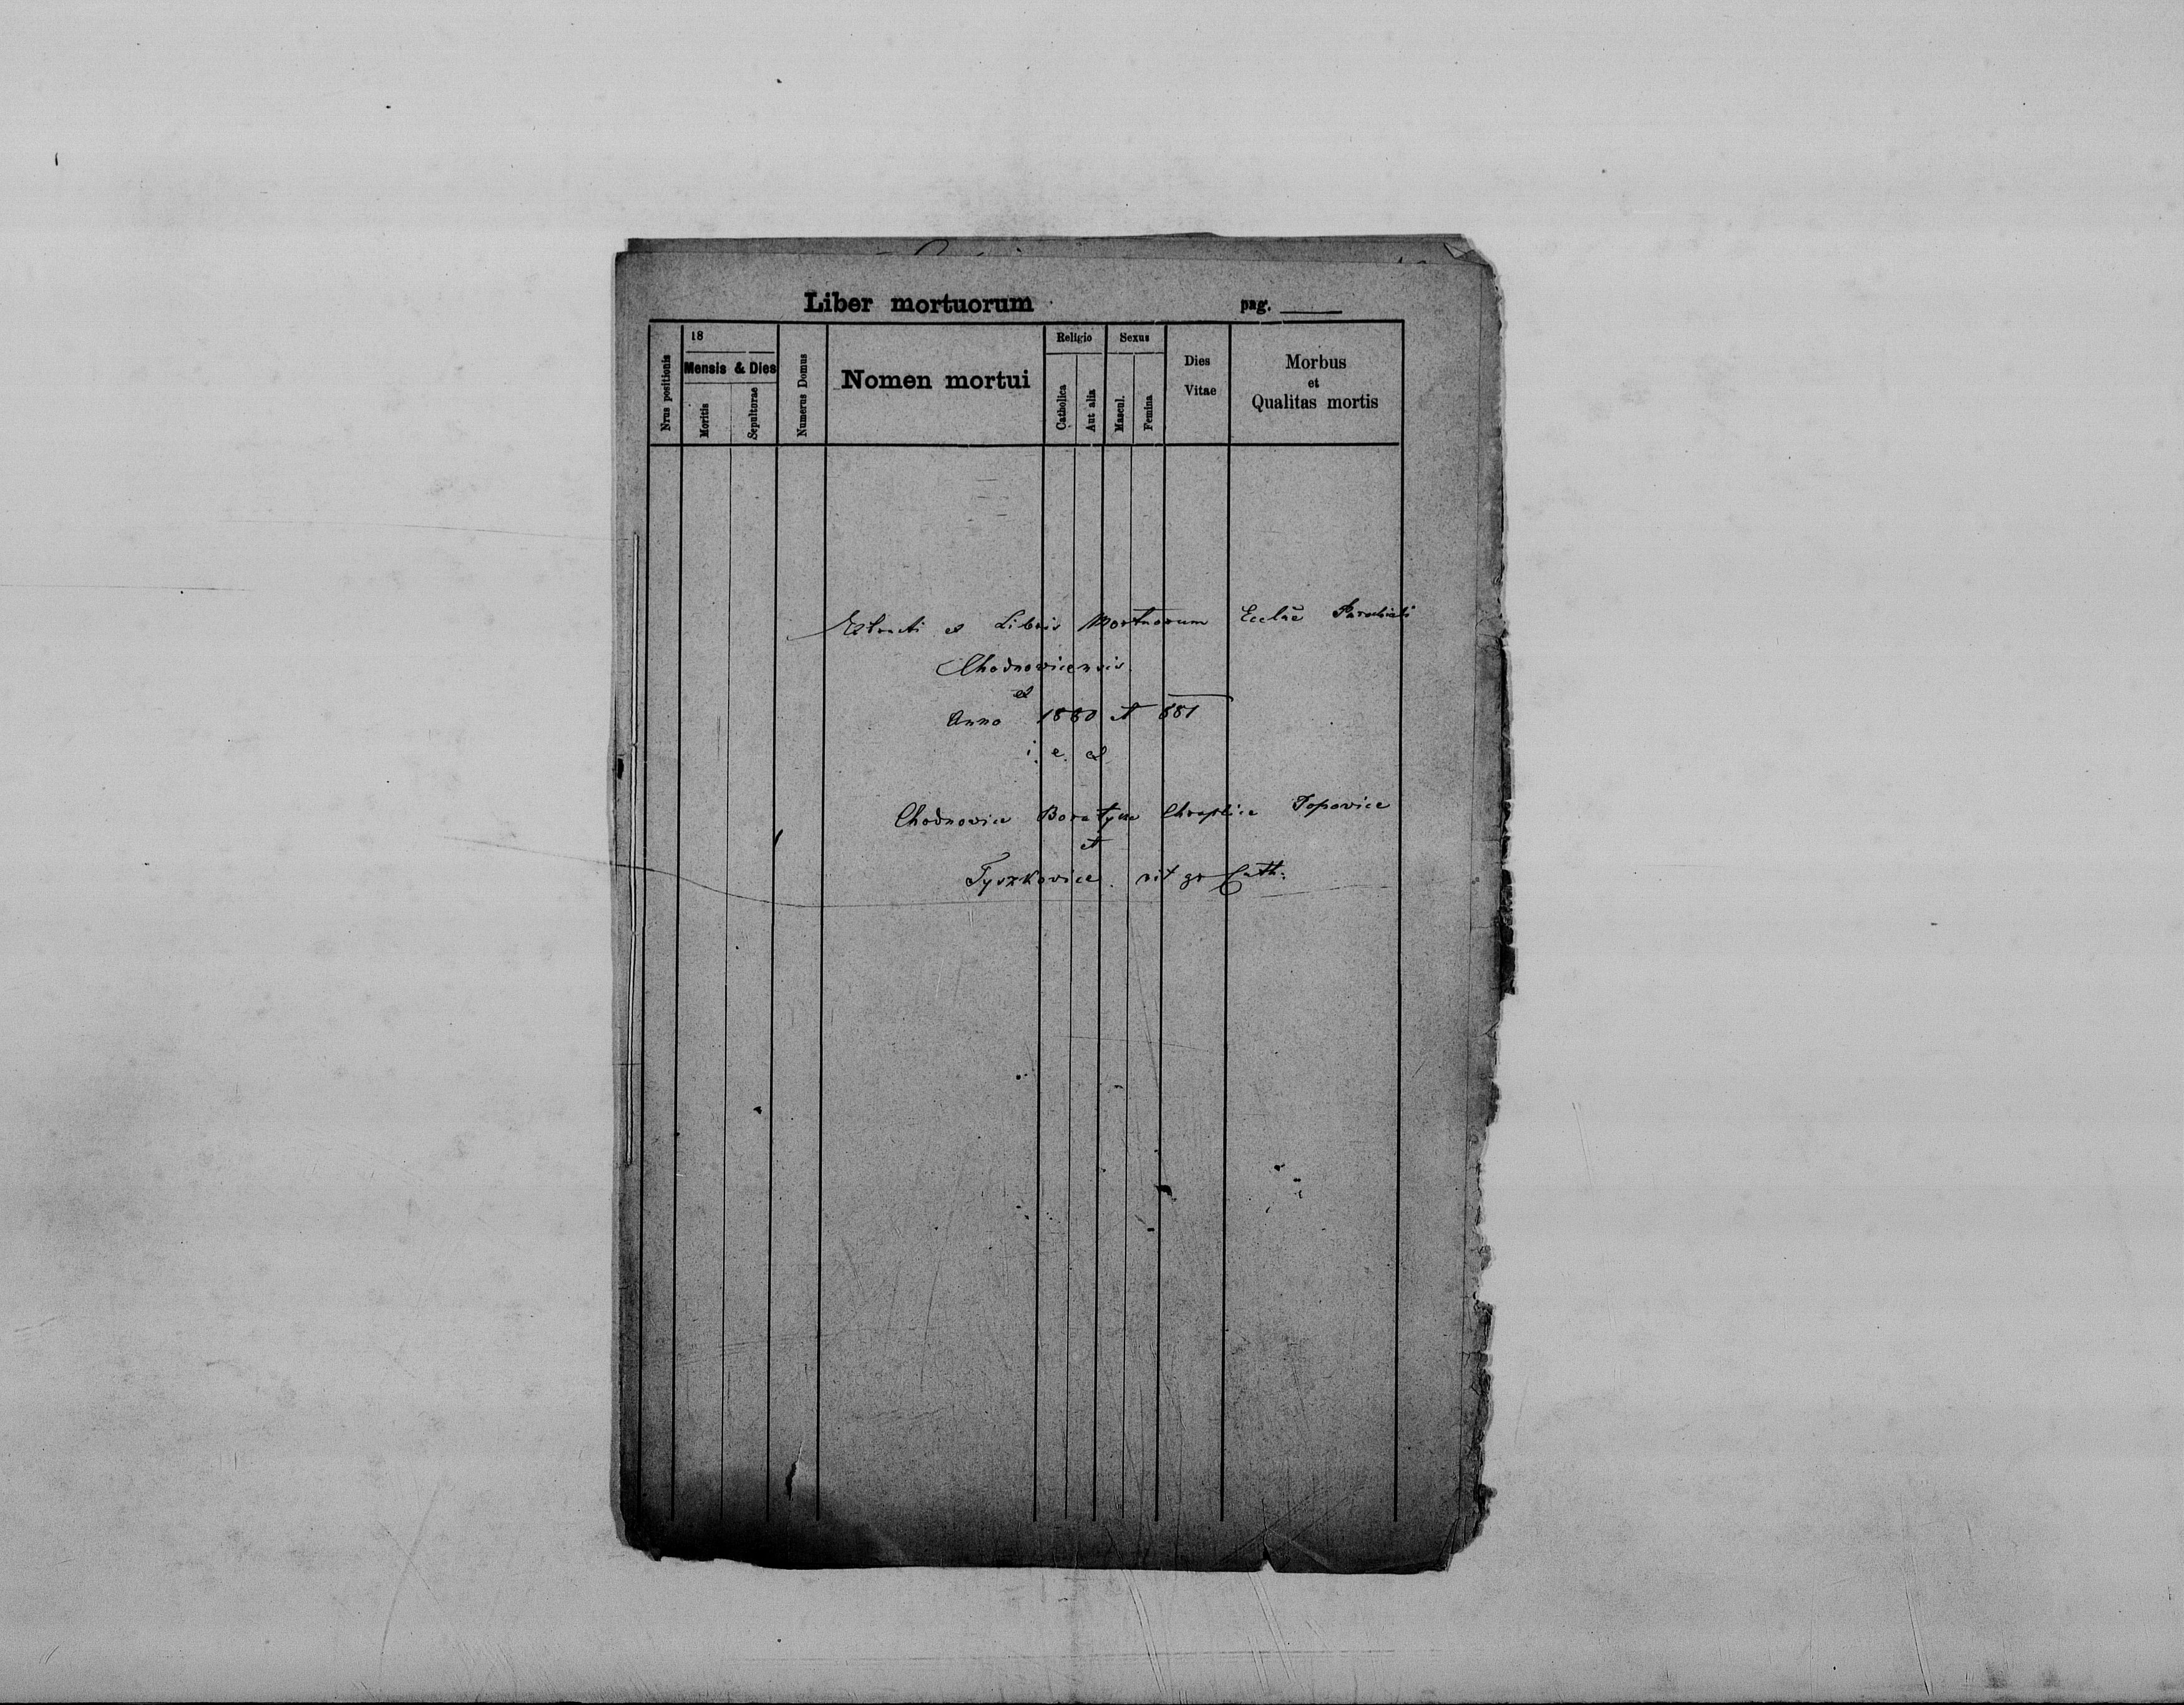 Liber mortuorum pag.
Nrus positionis
18
Mensis & Dies
Moritis
Sepulturae
Numerus Domus
Nomen mortui
Religio
Catholica
Aut alia
Sexus
Mascul.
Femina
Dies
Vitae
Morbus
et
Qualitas mortis
Extracti ex Libris Mortuorum Ecclae Parochiali
Chodnowicensis
ex
Anno 1880 et 881
i. e. ex
Chodnowice Boratycze Chraplice Popowice
et
Tyszkowice. rit gr Cath: